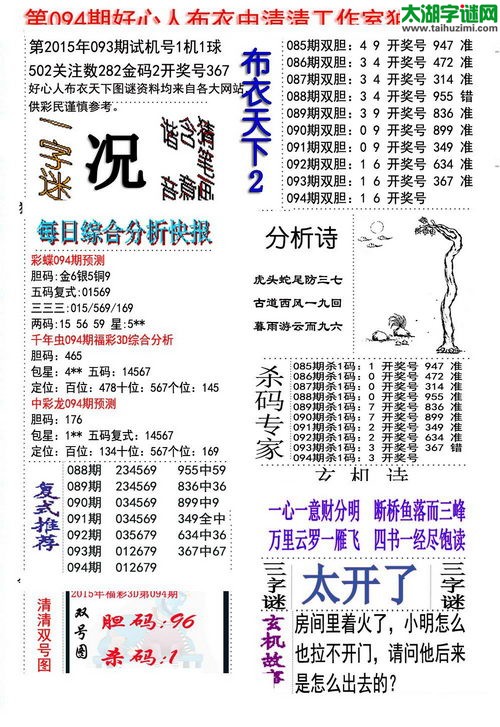 太湖字谜网
www.taihuzimi.com
第094期好心人布衣中清清工作室
第2015年093期试机号1机1球
502关注数282金码2开奖号367
好心人布衣天下图谜资料均来自各大网站
供彩民谨慎参考。
一字谜
况
每日综合分析快报
彩蝶094期预测
胆码:金6银5铜9
五码复式:01569
三三三:015/569/169
两码:15 56 59 星:5**
千年虫094期福彩3D综合分析
胆码: 465
包星: 4** 五码: 14567
定位: 百位: 478十位: 567个位: 145
中彩龙094期预测
胆码: 176
包星: 1** 五码复式: 14567
定位: 百位: 134十位: 567个位: 169
复式推荐
088期 234569 955中59
089期 234569 836中36
090期 034569 899中9
091期 034569 349全中
092期 035679 634中36
093期 012679 367中67
094期 012679
清清双号图
2015年福彩3D第094期
双号图
胆码:96
杀码:1
布衣天下2
085期双胆: 4 9 开奖号 947 准
086期双胆: 3 4 开奖号 472 准
087期双胆: 3 4 开奖号 314 准
088期双胆: 3 4 开奖号 955 错
089期双胆: 3 9 开奖号 836 准
090期双胆: 0 9 开奖号 899 准
091期双胆: 0 9 开奖号 349 准
092期双胆: 1 6 开奖号 634 准
093期双胆: 1 6 开奖号 367 准
094期双胆: 1 6 开奖号
分析诗
虎头蛇尾防三七
古道西风一九回
暮雨游云而九六
杀码专家
085期杀1码: 1 开奖号 947 准
086期杀1码: 0 开奖号 472 准
087期杀1码: 0 开奖号 314 准
088期杀1码: 0 开奖号 955 准
089期杀1码: 7 开奖号 836 准
090期杀1码: 7 开奖号 899 准
091期杀1码: 2 开奖号 349 准
092期杀1码: 2 开奖号 634 准
093期杀1码: 3 开奖号 367 错
094期杀1码: 3 开奖号
玄机诗
一心一意财分明 断桥鱼落而三峰
万里云罗一雁飞 四书一经尽饱读
三字谜
太开了
三字谜
玄机故事
房间里着火了, 小明怎么
也拉不开门, 请问他后来
是怎么出去的?